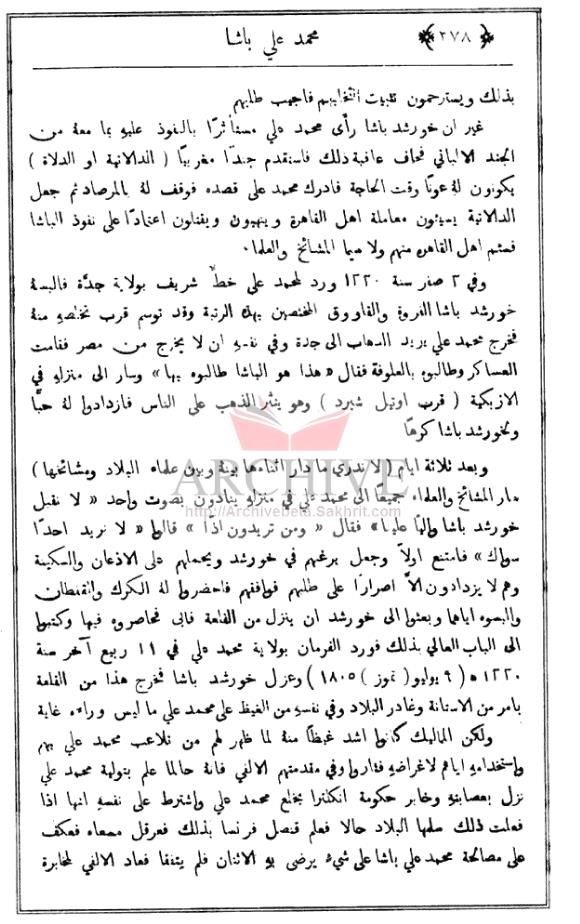 ﴿٢٧٨﴾
محمد علي باشا
بذلك ويسترحمون تثبيت انتخابهم فاجيب طلبهم
غير ان خورشد باشا رأى محمد علي مستأثرًا بالنفوذ عليهِ بما معهُ من
الجند الالباني فخاف عاقبة ذلك فاستقدم جندًا مغربيًا ( الدالاتية او الدلاة )
يكونون لهُ عونًا وقت الحاجة فادرك محمد علي قصده فوقف لهُ بالمرصاد ثم جعل
الدالاتية يسيئون معاملة اهل القاهرة وينهبون ويقتلون اعتمادًا على نفوذ الباشا
فسئم اهل القاهره منهم ولا سيما المشائخ والعلماء ٠
وفي ٢ صفر سنة ١٢٢٠ ورد لمحمد علي خطٌّ شريف بولاية جدَّة فالبسهُ
خورشد باشا الفروة والقاووق المختصين بهذه الرتبة وقد توسم قرب تخلصهِ منهُ
فخرج محمد علي يريد الذهاب الى جدة وفي نفسهِ ان لا يخرج من مصر فقامت
العساكر وطالبوه بالعلوفة فقال « هذا هو الباشا طالبوه بها » وسار الى منزلهِ في
الازبكية ( قرب اوتيل شبرد ) وهو ينثر الذهب على الناس فازدادوا لهُ حبًّا
ولخورشد باشا كرهًا
وبعد ثلاثة ايام ( لا ندري ما دار اثناءها بينهُ وبين علماء البلاد ومشائخها )
سار المشائخ والعلماء جميعًا الى محمد علي في منزلهِ ينادون بصوت واحد « لا نقبل
خورشد باشا واليًا علينا » فقال « ومن تريدون اذًا » قالوا « لا نريد احدًا
سواك » فامتنع اولاً وجعل يرغبهم في خورشد ويحملهم على الاذعان والسكينة
وهم لا يزدادون الاَّ اصرارًا على طلبهم فوافقهم فاحضروا لهُ الكرك والقفطان
والبسوه اياهما وبعثوا الى خورشد ان ينزل من القلعة فابى فحاصروه فيها وكتبوا
الى الباب العالي بذلك فورد الفرمان بولاية محمد علي في ١١ ربيع آخر سنة
١٢٢٠ ه ( ٩ يوليو ( تموز ) ١٨٠٥ ) وعزل خورشد باشا فخرج هذا من القلعة
بامر من الاستانة وغادر البلاد وفي نفسهِ من الغيظ على محمد علي ما ليس وراءه غاية
ولكن المماليك كانوا اشد غيظًا منهُ لما ظهر لهم من تلاعب محمد علي بهم
واستخدامهِ اياهم لاغراضهِ فثاروا وفي مقدمتهم الالفي فانهُ حالما علم بتولية محمد علي
نزل بعصابتهِ وخابر حكومة انكلترا بخلع محمد علي واشترط على نفسهِ انها اذا
فعلت ذلك سلمها البلاد حالا فعلم قنصل فرنسا بذلك فعرقل مسعاه فعكف
على مصالحة محمد علي باشا على شيءٍ يرضى بهِ الاثنان فلم يتفقا فعاد الالفي لمخابرة
ARCHIVE
http://Archivebeta.Sakhrit.com